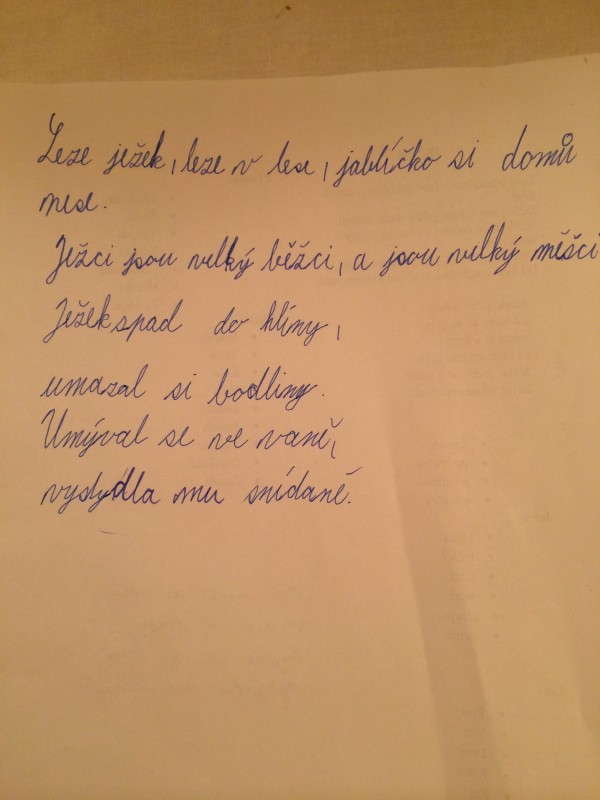 Leze ježek, leze v lese, jablíčko si domů
nese.
Ježci jsou velký běžci, a jsou velký měšci
Ježek spad do hlíny,
umazal si bodliny.
Umýval se ve vaně,
vystydla mu snídaně.